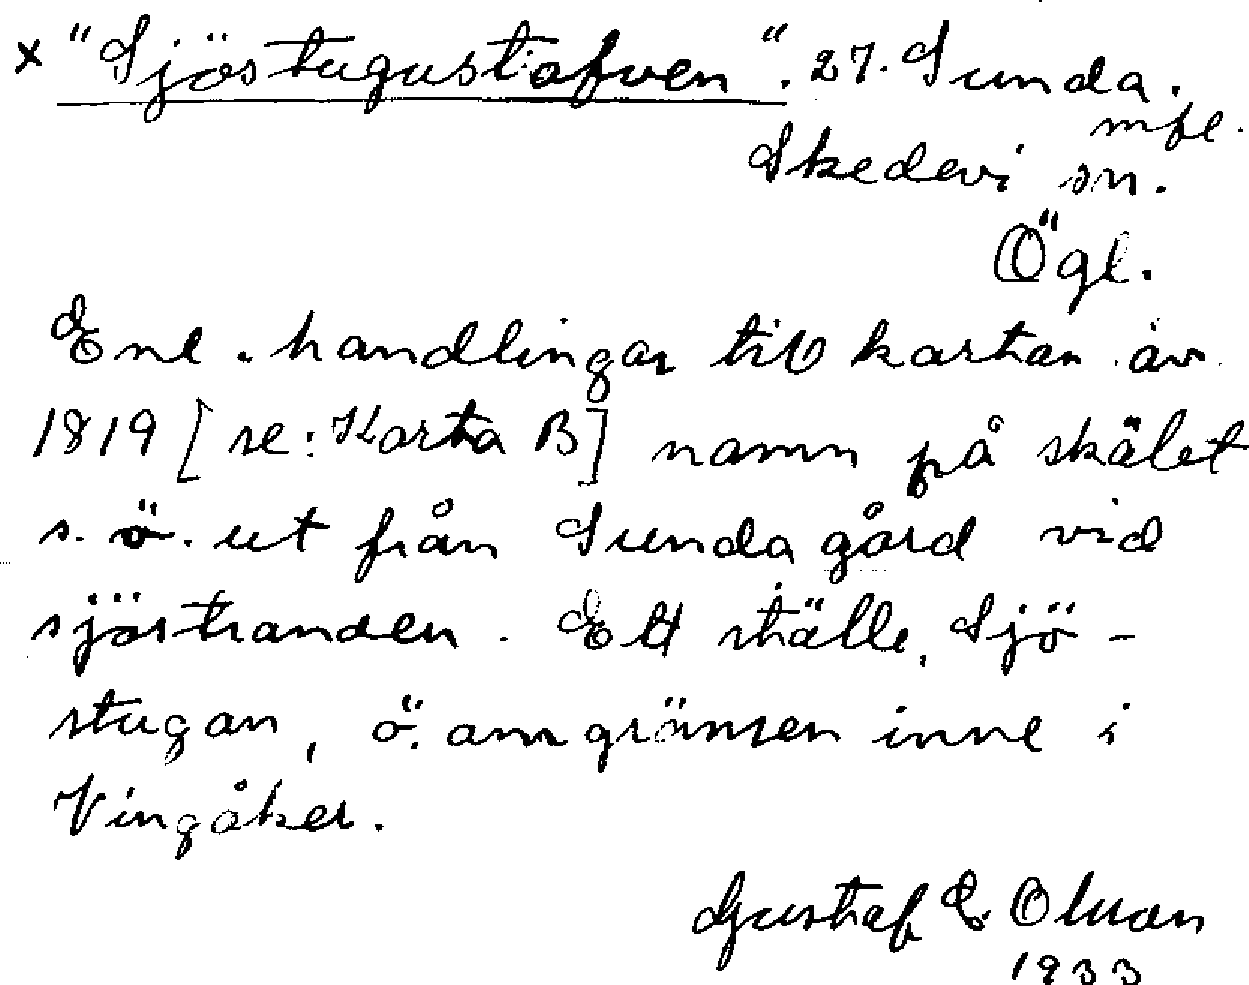 x "Sjöstugustafven". 27. Sunda.
mfl.
Skedevi sn.
Ögl.
Enl. handlingar till kartan av
1819 [se: Karta B] namn på skälet
s. ö. ut från Sunda gård vid
sjöstranden. Ett ställe, Sjö-
stugan, ö. om gränsen inne i
Vingåker.
Gustaf E. Olsson
1933